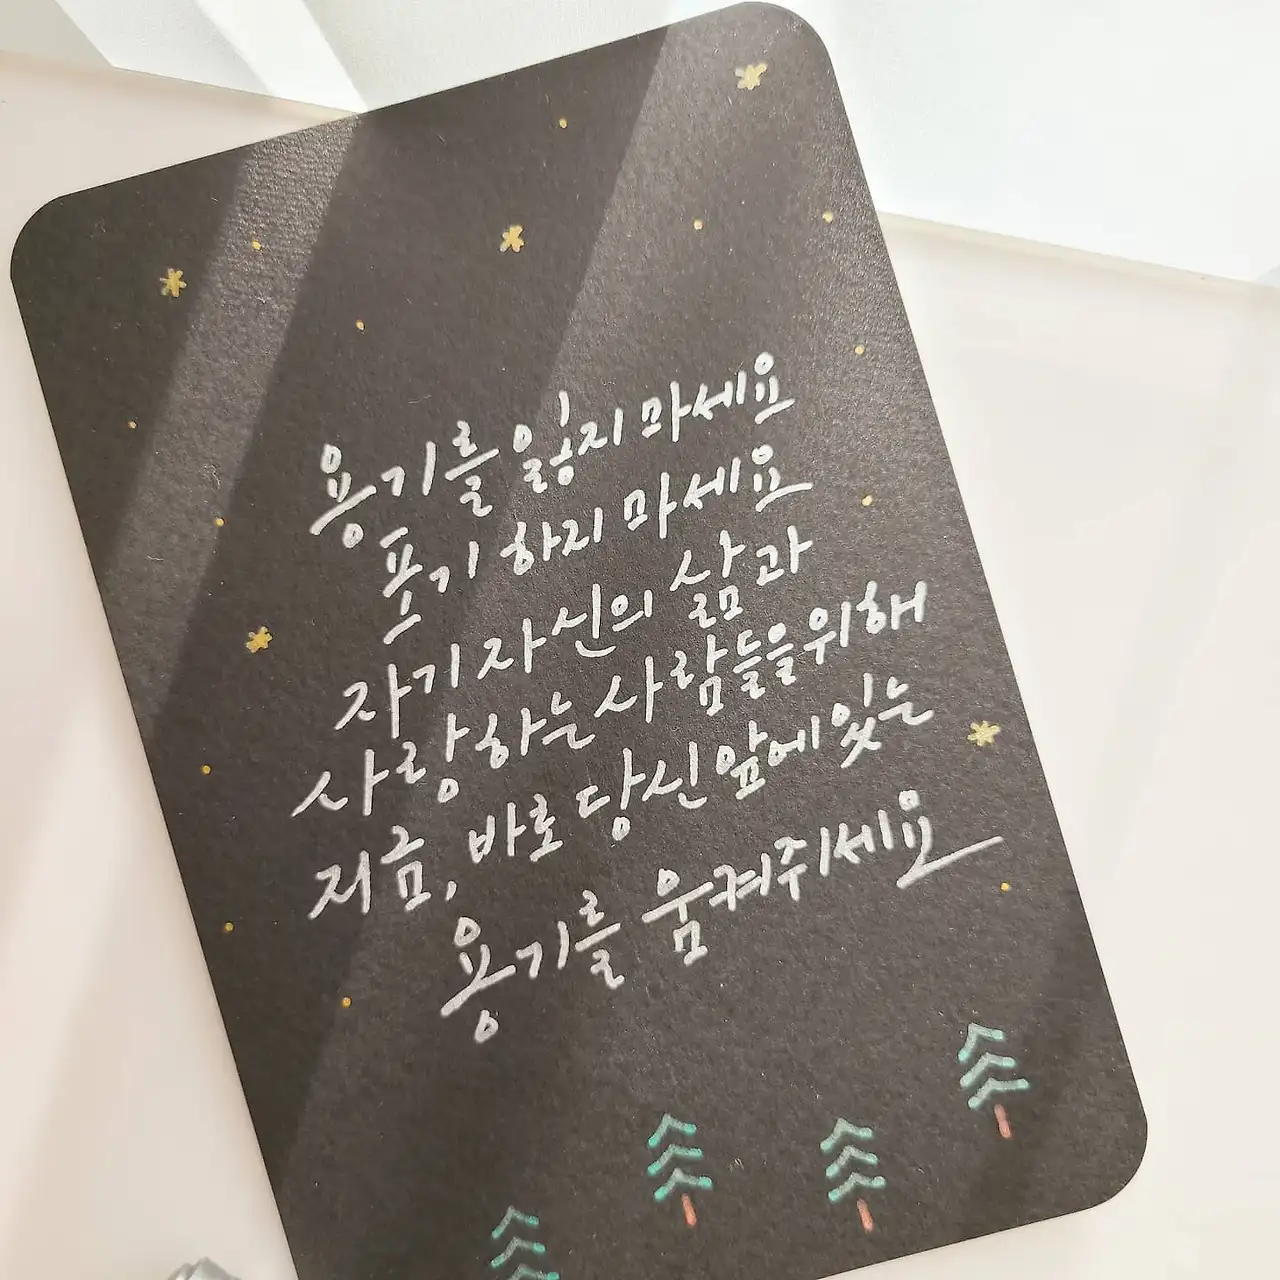 용기를 잃지 마세요
포기 하지 마세요
자기 자신의 삶과
사랑하는 사람들을 위해
지금, 바로 당신 앞에 있는
용기를 움켜쥐세요